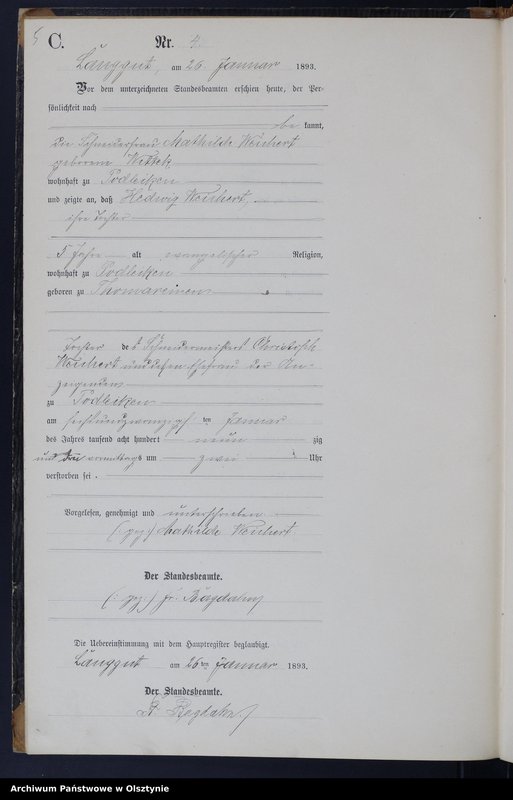 5
C.
Nr. 4.
Länggut, am 26. Januar 1893.
Vor dem unterzeichneten Standesbeamten erschien heute, der Per-
sönlichkeit nach
be kannt,
die Schneiderfrau Mathilde Weichert
geborene Wittek
wohnhaft zu Podleiken
und zeigte an, daß Hedwig Weichert,
ihre Tochter
5 Jahre alt evangelischer Religion,
wohnhaft zu Podleiken
geboren zu Thomareinen
Tochter des Schneidermeisters Christoph
Weichert und dessen Ehefrau der An-
zeigenden
zu Podleiken
am sechsundzwanzigsten ten Januar
des Jahres tausend acht hundert neun zig
und drei vormittags um zwei Uhr
verstorben sei.
Vorgelesen, genehmigt und unterschrieben
(: gez :) Mathilde Weichert
Der Standesbeamte.
(: gez :)
Die Uebereinstimmung mit dem Hauptregister beglaubigt.
Länggut am 26ten Januar 1893.
Der Standesbeamte.
Archiwum Państwowe w Olsztynie